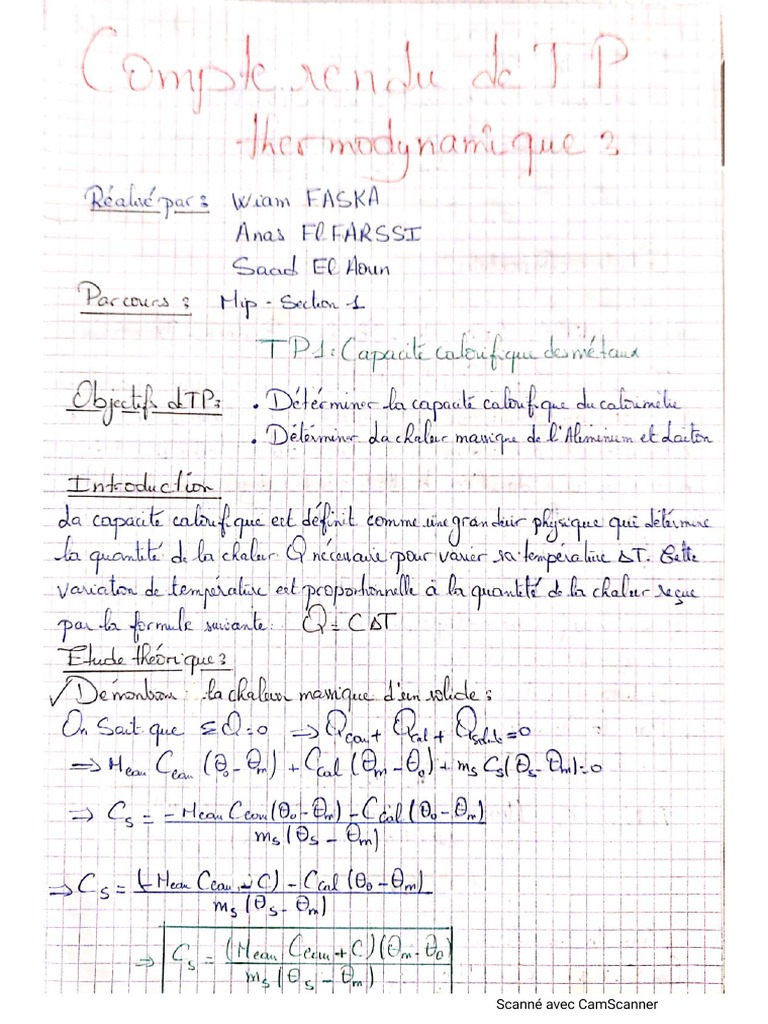 Compte rendu de TP
thermodynamique :
Réalisé par : Wiam FASKA
Anas El FARSSI
Saad El Aoun
Parcours : Mip - Section 1
TP1 : Capacité calorifique des métaux
Objectifs de TP : • Détérminer la capacité calorifique du calorimétre
• Détérminer La chaleur massique de l'Aluminium et Laiton
Introduction
La capacité calorifique est définit comme une grandeur physique qui détermine
la quantité de la chaleur Q nécessaire pour varier sa température ΔT. Cette
variation de température est proportionnelle à la quantité de la chaleur reçue
par la formule suivante : Q = CΔT
Etude théorique :
✓ Démonbon : la chaleur massique d'un solide :
On Sait que ΣQ=0 ⇒ Qeau + Qcal + Qsolide = 0
⇒ Meau Ceau (θ0-θm) + Ccal (θm-θ0) + ms Cs (θs-θm)=0
⇒ Cs = -Meau Ceau (θ0-θm) - Ccal (θ0-θm) / ms (θs-θm)
⇒ Cs = (-Meau Ceau - C) - Ccal (θ0-θm) / ms (θs-θm)
⇒ Cs = (Meau Ceau + C)(θm-θ0) / ms (θs-θm)
Scanné avec CamScanner